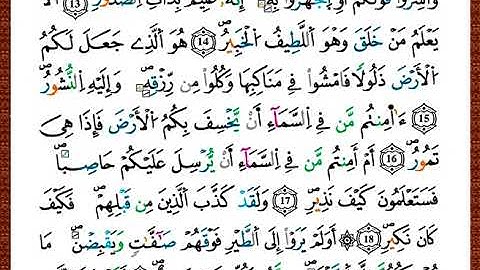 وَأَسِرُّوا۟ قَوْلَكُمْ أَوِ ٱجْهَرُوا۟ بِهِۦٓ ۖ إِنَّهُۥ عَلِيمٌۢ بِذَاتِ ٱلصُّدُورِ (13) أَلَا
يَعْلَمُ مَنْ خَلَقَ وَهُوَ ٱللَّطِيفُ ٱلْخَبِيرُ (14) هُوَ ٱلَّذِى جَعَلَ لَكُمُ
ٱلْأَرْضَ ذَلُولًا فَٱمْشُوا۟ فِى مَنَاكِبِهَا وَكُلُوا۟ مِن رِّزْقِهِۦ ۖ وَإِلَيْهِ ٱلنُّشُورُ
(15) ءَأَمِنتُم مَّن فِى ٱلسَّمَآءِ أَن يَخْسِفَ بِكُمُ ٱلْأَرْضَ فَإِذَا هِىَ
تَمُورُ (16) أَمْ أَمِنتُم مَّن فِى ٱلسَّمَآءِ أَن يُرْسِلَ عَلَيْكُمْ حَاصِبًا ۖ
فَسَتَعْلَمُونَ كَيْفَ نَذِيرِ (17) وَلَقَدْ كَذَّبَ ٱلَّذِينَ مِن قَبْلِهِمْ فَكَيْفَ
كَانَ نَكِيرِ (18) ۞ أَوَلَمْ يَرَوْا۟ إِلَى ٱلطَّيْرِ فَوْقَهُمْ صَٰٓفَّٰتٍ وَيَقْبِضْنَ ۚ مَا